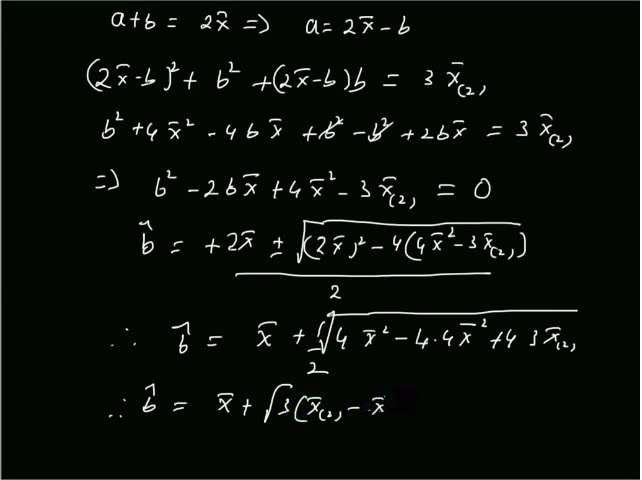 a+b = 2x̄ => a = 2x̄-b
(2x̄-b)² + b² + (2x̄-b)b = 3 x̄₍₂₎
b² + 4x̄² - 4bx̄ + b² - b² + 2bx̄ = 3 x̄₍₂₎
=> b² - 2bx̄ + 4x̄² - 3x̄₍₂₎ = 0
b̂ = +2x̄ ± √((2x̄)² - 4(4x̄² - 3x̄₍₂₎))
2
∴ b̂ = x̄ + √(4 x̄² - 4·4x̄² + 4 3 x̄₍₂₎
2
∴ b̂ = x̄ + √3(x̄₍₂₎ - x̄